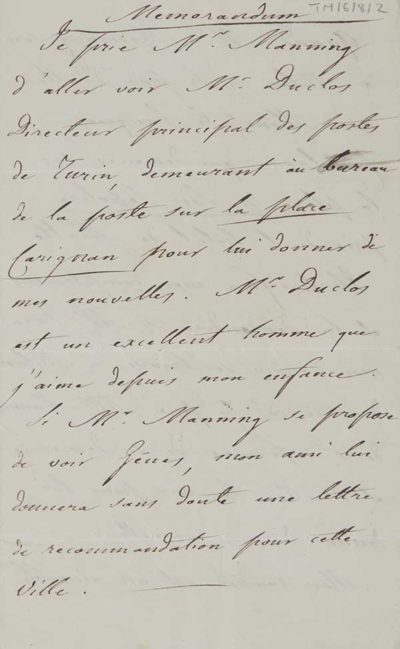 TM/6/8/2
Memorandum
Je prie Mr. Manning
d'aller voir Mr. Duclos
Directeur principal des postes
de Turin, demeurant au bureau
de la poste sur la place
Carignan pour lui donner de
mes nouvelles. Mr. Duclos
est un excellent homme que
j'aime depuis mon enfance.
Si Mr. Manning se propose
de voir Gênes, mon ami lui
donnera sans doute une lettre
de recommandation pour cette
ville.